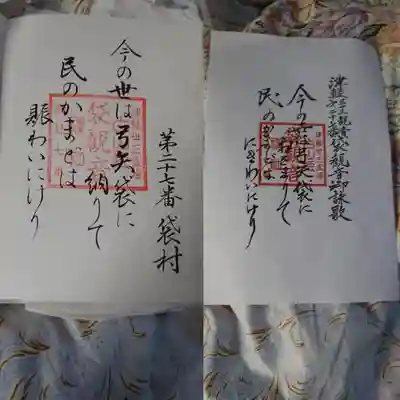 第二十七番 袋村
今の世は弓矢袋に
納りて
民のかまどは
賑わいにけり
袋観音
津軽三十三観音
袋観音御詠歌
今の世は弓矢袋に
おさまりて
民のかまどは
にぎわいにけり